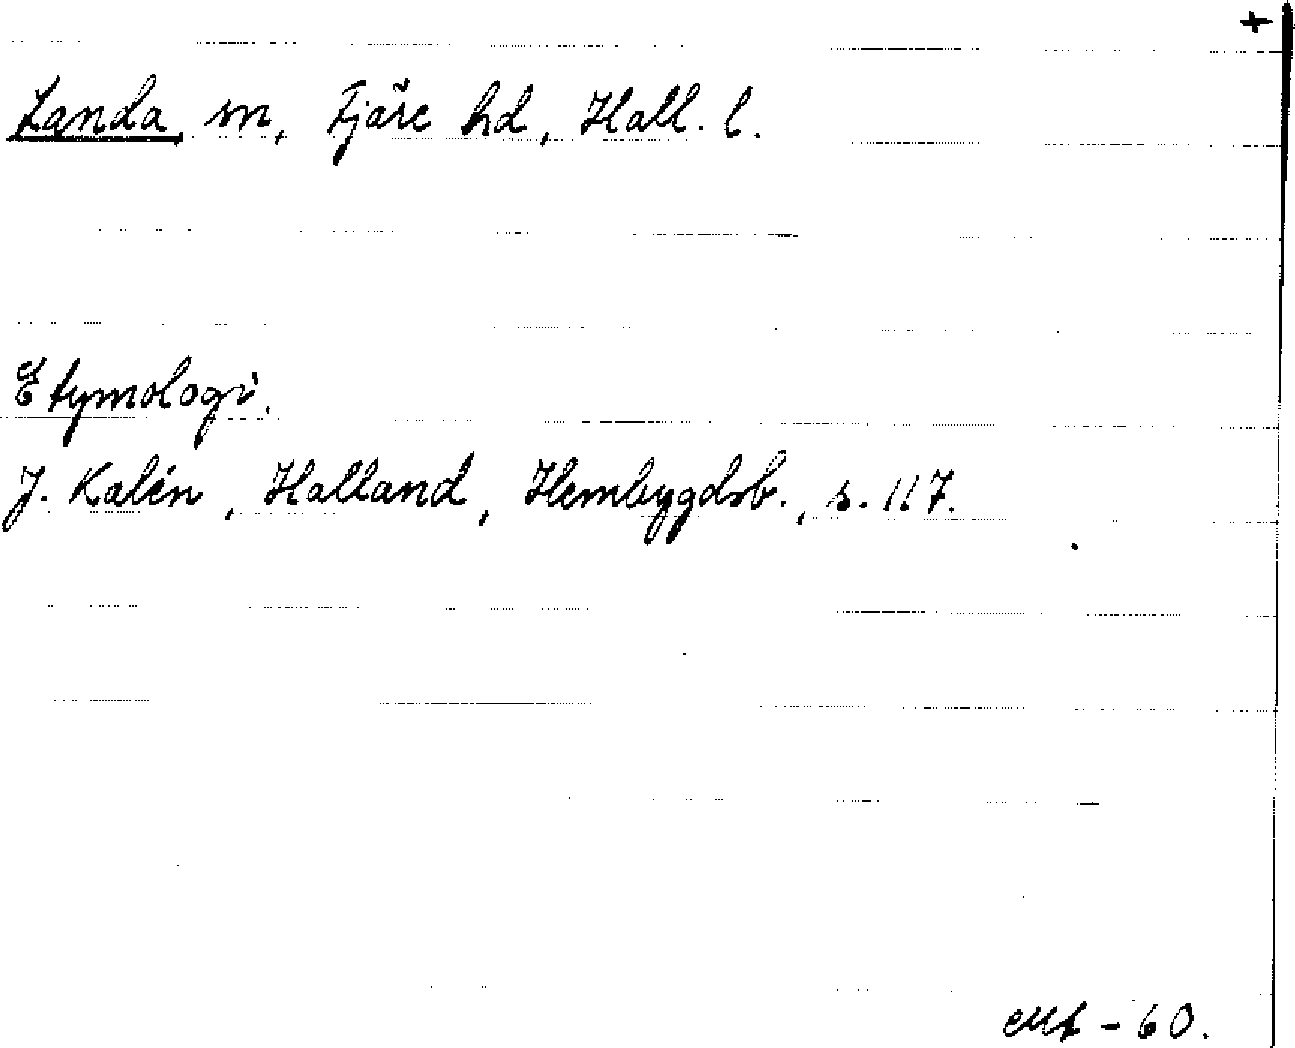 +
Landa, sn, Fjäre hd, Hall. l.
Etymologi.
J. Kalén, Halland, Hembygdsb., s. 117.
-60.